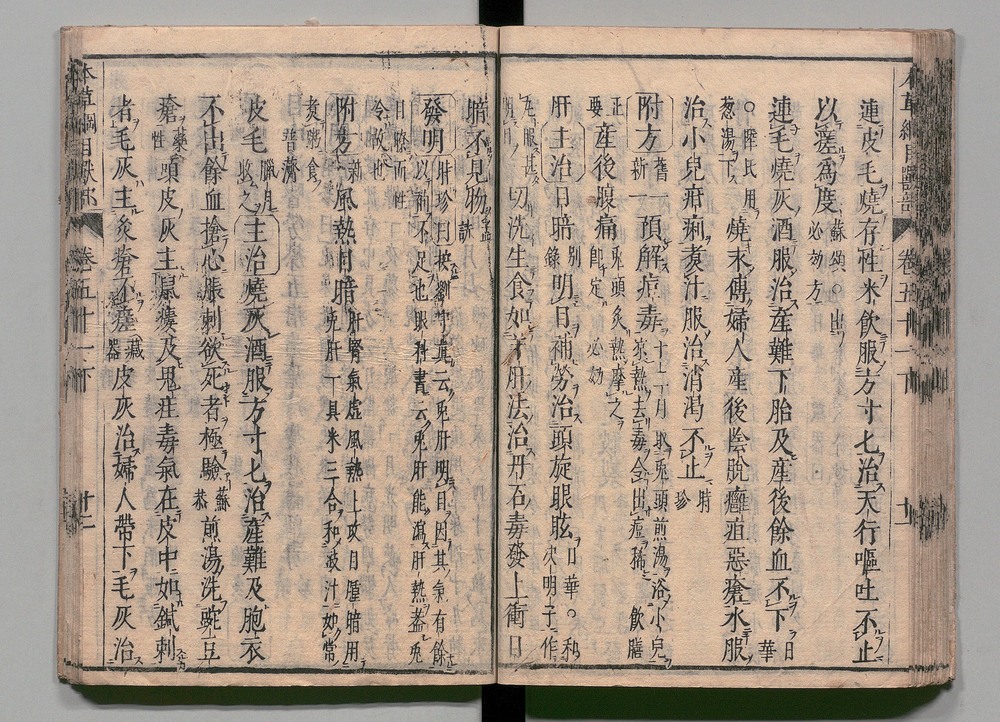 連皮毛燒存性米飲服方寸匕治天行嘔吐不止
以瘥爲度 蘇頌○出必効方
連毛燒灰酒服治産難下胎及産後餘血不下 日華
○陳氏用葱湯下 燒末傅婦人産後陰脫癰疽惡瘡水服
治小兒疳痢煮汁服治消渴不止 時珍
附方 舊一新一 預解痘毒 十二月取兎頭煎湯浴小兒凉熱去毒令出痘稀 飲膳
正要 産後腹痛 兎頭炙熱摩之即定 必効
肝 主治 目暗 別錄 明目補勞治頭旋眼眩 日華○和決明子作
丸服甚明目 切洗生食如羊肝法治丹石毒發上衝目
暗不見物 孟詵
發明 時珍曰按劉守真云兎肝明目因其氣有餘以補不足也眼科書云兎肝能瀉肝熱蓋兎
目瞭而性冷故也
附方 新一 風熱目暗 肝腎氣虛風熱上攻目腫暗用兎肝一具米三合和豉汁如常
煮粥食 普濟
皮毛 臘月收之 主治 燒灰酒服方寸匕治産難及胞衣
不出餘血搶心脹刺欲死者極驗 蘇恭 煎湯洗豌豆
瘡 藥性 頭皮灰主鼠瘻及鬼疰毒氣在皮中如鍼刺
者毛灰主灸瘡不瘥 藏器 皮灰治婦人帶下毛灰治
本草綱目獸部 卷五十一下 十一
本草綱目獸部 卷五十一下 十二